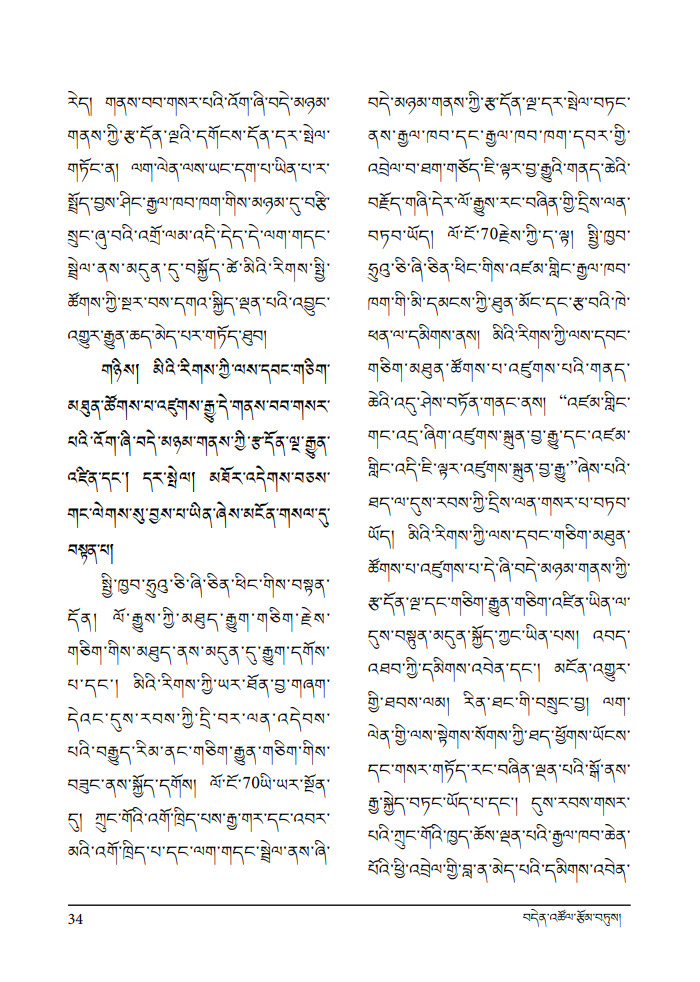 རེད། གནས་བབ་གསར་པའི་འོག་ཞི་བདེ་མཉམ་
གནས་ཀྱི་རྩ་དོན་ལྔའི་དགོངས་དོན་དར་སྤེལ་
གཏོང་ན། ལག་ལེན་ལས་ཡང་དག་པ་ཡིན་པ་ར་
སྤྲོད་བྱས་ཤིང་རྒྱལ་ཁབ་ཁག་གིས་མཉམ་དུ་བརྩི་
སྲུང་ཞུ་བའི་འགྲོ་ལམ་འདི་དེད་དེ་ལག་གདང་
སྦྲེལ་ནས་མདུན་དུ་བསྐྱོད་ཚེ་མིའི་རིགས་སྤྱི་
ཚོགས་ཀྱི་སྔར་བས་དགའ་སྐྱིད་ལྡན་པའི་འབྱུང་
འགྱུར་རྒྱུན་ཆད་མེད་པར་གཏོད་ཐུབ།
གཉིས། མིའི་རིགས་ཀྱི་ལས་དབང་གཅིག་
མཐུན་ཚོགས་པ་འཛུགས་རྒྱུ་དེ་གནས་བབ་གསར་
པའི་འོག་ཞི་བདེ་མཉམ་གནས་ཀྱི་རྩ་དོན་ལྔ་རྒྱུན་
འཛིན་དང་། དར་སྤེལ། མཐོར་འདེགས་བཅས་
གང་ལེགས་སུ་བྱས་པ་ཡིན་ཞེས་མངོན་གསལ་དུ་
བསྟན་པ།
སྤྱི་ཁྱབ་ཧྲུའུ་ཅི་ཞི་ཅིན་ཕིང་གིས་བསྟན་
དོན། ལོ་རྒྱུས་ཀྱི་མཐུད་རྒྱུག་གཅིག་རྗེས་
གཅིག་གིས་མཐུད་ནས་མདུན་དུ་རྒྱུག་དགོས་
པ་དང་། མིའི་རིགས་ཀྱི་ཡར་ཐོན་བྱ་གཞག་
དེའང་དུས་རབས་ཀྱི་དྲི་བར་ལན་འདེབས་
པའི་བརྒྱུད་རིམ་ནང་གཅིག་རྒྱུན་གཅིག་གིས་
བཟུང་ནས་སྐྱོད་དགོས། ལོ་ངོ་70ཡི་ཡར་སྔོན་
དུ། ཀྲུང་གོའི་འགོ་ཁྲིད་པས་རྒྱ་གར་དང་འབར་
མའི་འགོ་ཁྲིད་པ་དང་ལག་གདང་སྦྲེལ་ནས་ཞི་
བདེ་མཉམ་གནས་ཀྱི་རྩ་དོན་ལྔ་དར་སྤེལ་བཏང་
ནས་རྒྱལ་ཁབ་དང་རྒྱལ་ཁབ་ཁག་དབར་གྱི་
འབྲེལ་བ་ཐག་གཅོད་ཇི་ལྟར་བྱ་རྒྱུའི་གནད་ཆེའི་
བརྗོད་གཞི་དེར་ལོ་རྒྱུས་རང་བཞིན་གྱི་དྲིས་ལན་
བཏབ་ཡོད། ལོ་ངོ་70རྗེས་ཀྱི་ད་ལྟ། སྤྱི་ཁྱབ་
ཧྲུའུ་ཅི་ཞི་ཅིན་ཕིང་གིས་འཛམ་གླིང་རྒྱལ་ཁབ་
ཁག་གི་མི་དམངས་ཀྱི་ཐུན་མོང་དང་རྩ་བའི་ཁེ་
ཕན་ལ་དམིགས་ནས། མིའི་རིགས་ཀྱི་ལས་དབང་
གཅིག་མཐུན་ཚོགས་པ་འཛུགས་པའི་གནད་
ཆེའི་འདུ་ཤེས་བཏོན་གནང་ནས། “འཛམ་གླིང་
གང་འདྲ་ཞིག་འཛུགས་སྐྲུན་བྱ་རྒྱུ་དང་འཛམ་
གླིང་འདི་ཇི་ལྟར་འཛུགས་སྐྲུན་བྱ་རྒྱུ་”ཞེས་པའི་
ཐད་ལ་དུས་རབས་ཀྱི་དྲིས་ལན་གསར་པ་བཏབ་
ཡོད། མིའི་རིགས་ཀྱི་ལས་དབང་གཅིག་མཐུན་
ཚོགས་པ་འཛུགས་པ་དེ་ཞི་བདེ་མཉམ་གནས་ཀྱི་
རྩ་དོན་ལྔ་དང་གཅིག་རྒྱུན་གཅིག་འཛིན་ཡིན་ལ་
དུས་བསྟུན་མདུན་སྐྱོད་ཀྱང་ཡིན་པས། འབད་
འཐབ་ཀྱི་དམིགས་འབེན་དང་། མངོན་འགྱུར་
གྱི་ཐབས་ལམ། རིན་ཐང་གི་བསྲུང་བྱ། ལག་
ལེན་གྱི་ལས་སྟེགས་སོགས་ཀྱི་ཐད་ཕྱོགས་ཡོངས་
དང་གསར་གཏོད་རང་བཞིན་ལྡན་པའི་སྒོ་ནས་
རྒྱ་སྐྱེད་བཏང་ཡོད་པ་དང་། དུས་རབས་གསར་
པའི་ཀྲུང་གོའི་ཁྱད་ཆོས་ལྡན་པའི་རྒྱལ་ཁབ་ཆེན་
པོའི་ཕྱི་འབྲེལ་གྱི་བླ་ན་མེད་པའི་དམིགས་འབེན་
34
བདེན་འཚོལ་རྩོམ་བཏུས།